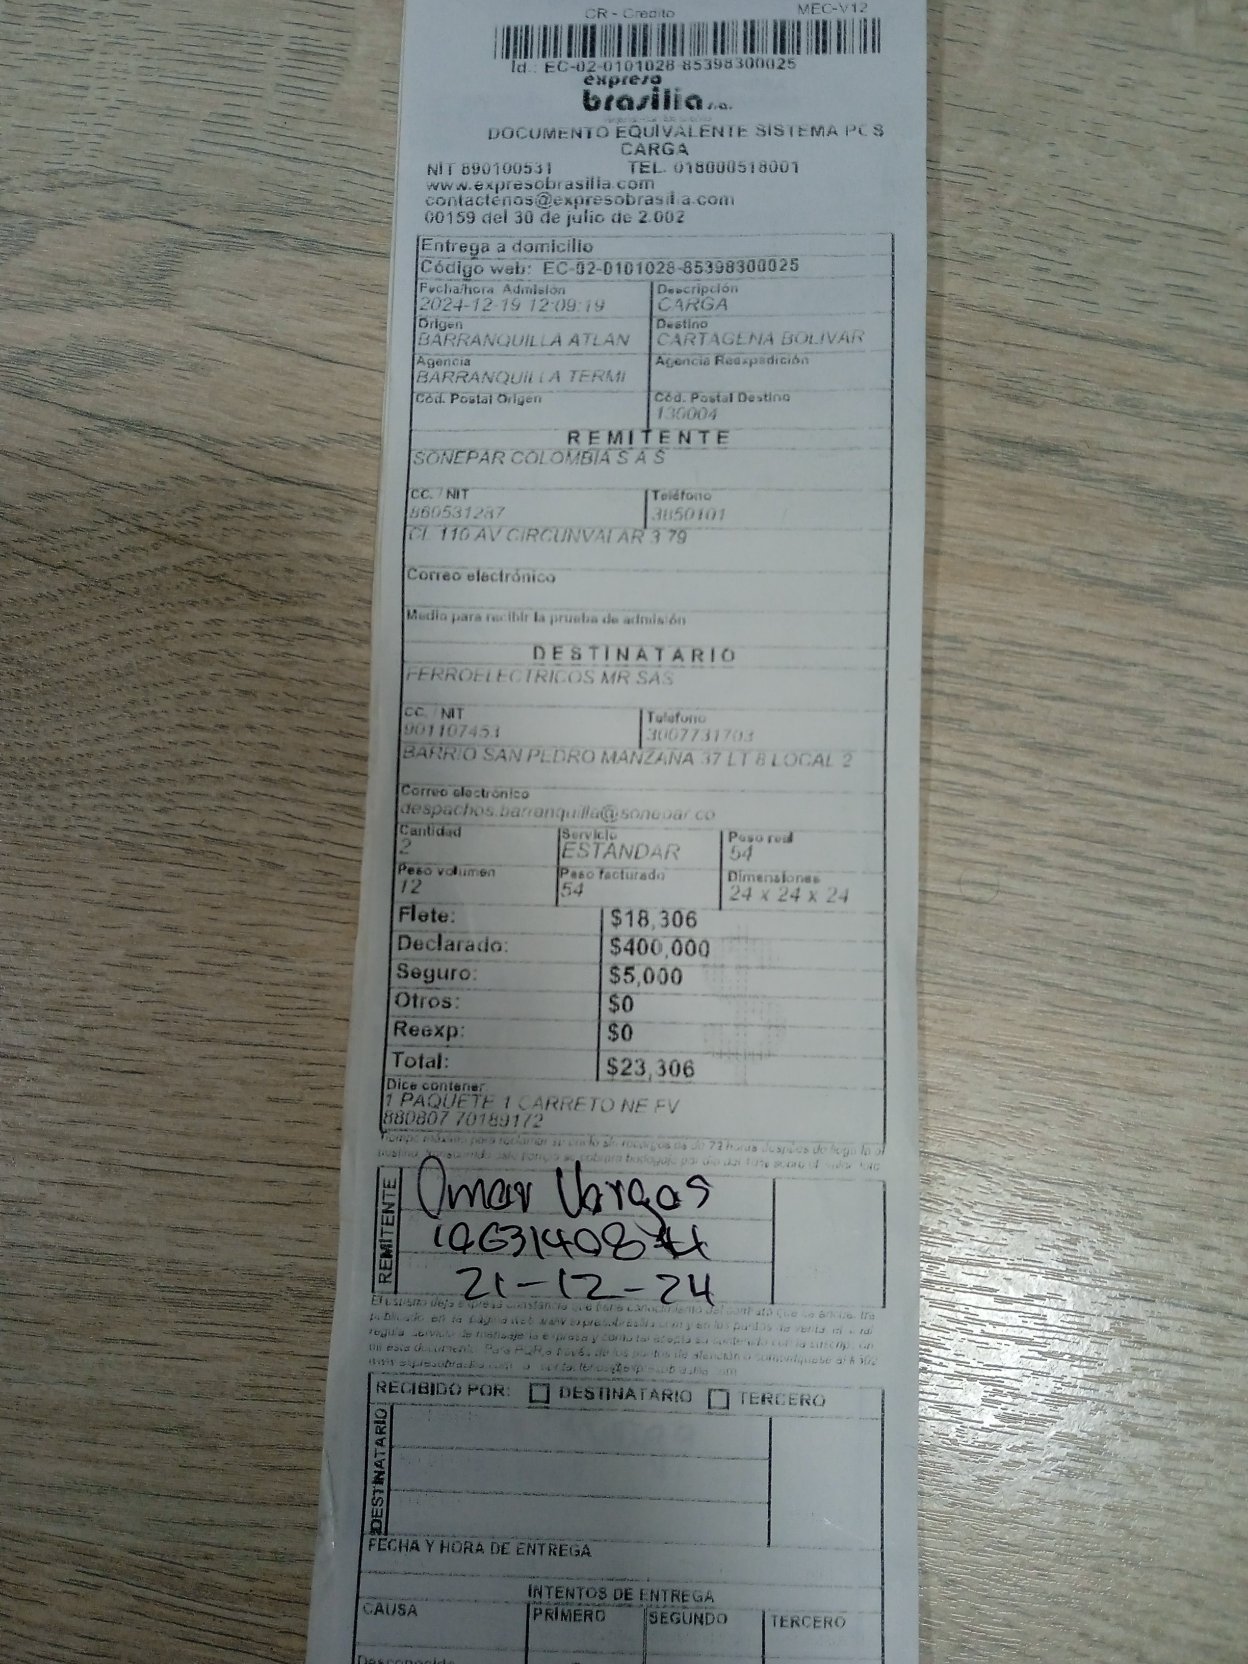 CR - Crédito MEC-V12
Id.: EC-02-0101028-85398300025
expreso
brasilia s.a.
DOCUMENTO EQUIVALENTE SISTEMA POS
CARGA
NIT 890100531 TEL. 018000518001
www.expresobrasilia.com
contactenos@expresobrasilia.com
00159 del 30 de julio de 2.002
Entrega a domicilio
Código web: EC-02-0101028-85398300025
Fecha/hora Admisión Descripción
2024-12-19 12:09:19 CARGA
Origen Destino
BARRANQUILLA ATLAN CARTAGENA BOLIVAR
Agencia Agencia Reexpedición
BARRANQUILLA TERMI
Cód. Postal Origen Cód. Postal Destino
130004
REMITENTE
SONEPAR COLOMBIA S A S
CC. / NIT Teléfono
860531287 3850101
CL 110 AV CIRCUNVALAR 3 79
Correo electrónico
Medio para recibir la prueba de admisión
DESTINATARIO
FERROELECTRICOS MR SAS
CC. / NIT Teléfono
901107453 3007731703
BARRIO SAN PEDRO MANZANA 37 LT 8 LOCAL 2
Correo electrónico
despachos.barranquilla@sonepar.co
Cantidad Servicio Peso real
2 ESTANDAR 54
Peso volumen Peso facturado Dimensiones
12 54 24 x 24 x 24
Flete: $18,306
Declarado: $400,000
Seguro: $5,000
Otros: $0
Reexp: $0
Total: $23,306
Dice contener:
1 PAQUETE 1 CARRETO NE FV
880807 70189172
Tiempo máximo para reclamar su envío sin recargos es de 72 horas después de llegada al
REMITENTE
Omar Vargas
21-12-24
RECIBIDO POR: DESTINATARIO TERCERO
DESTINATARIO
FECHA Y HORA DE ENTREGA
INTENTOS DE ENTREGA
CAUSA PRIMERO SEGUNDO TERCERO
Desconocido